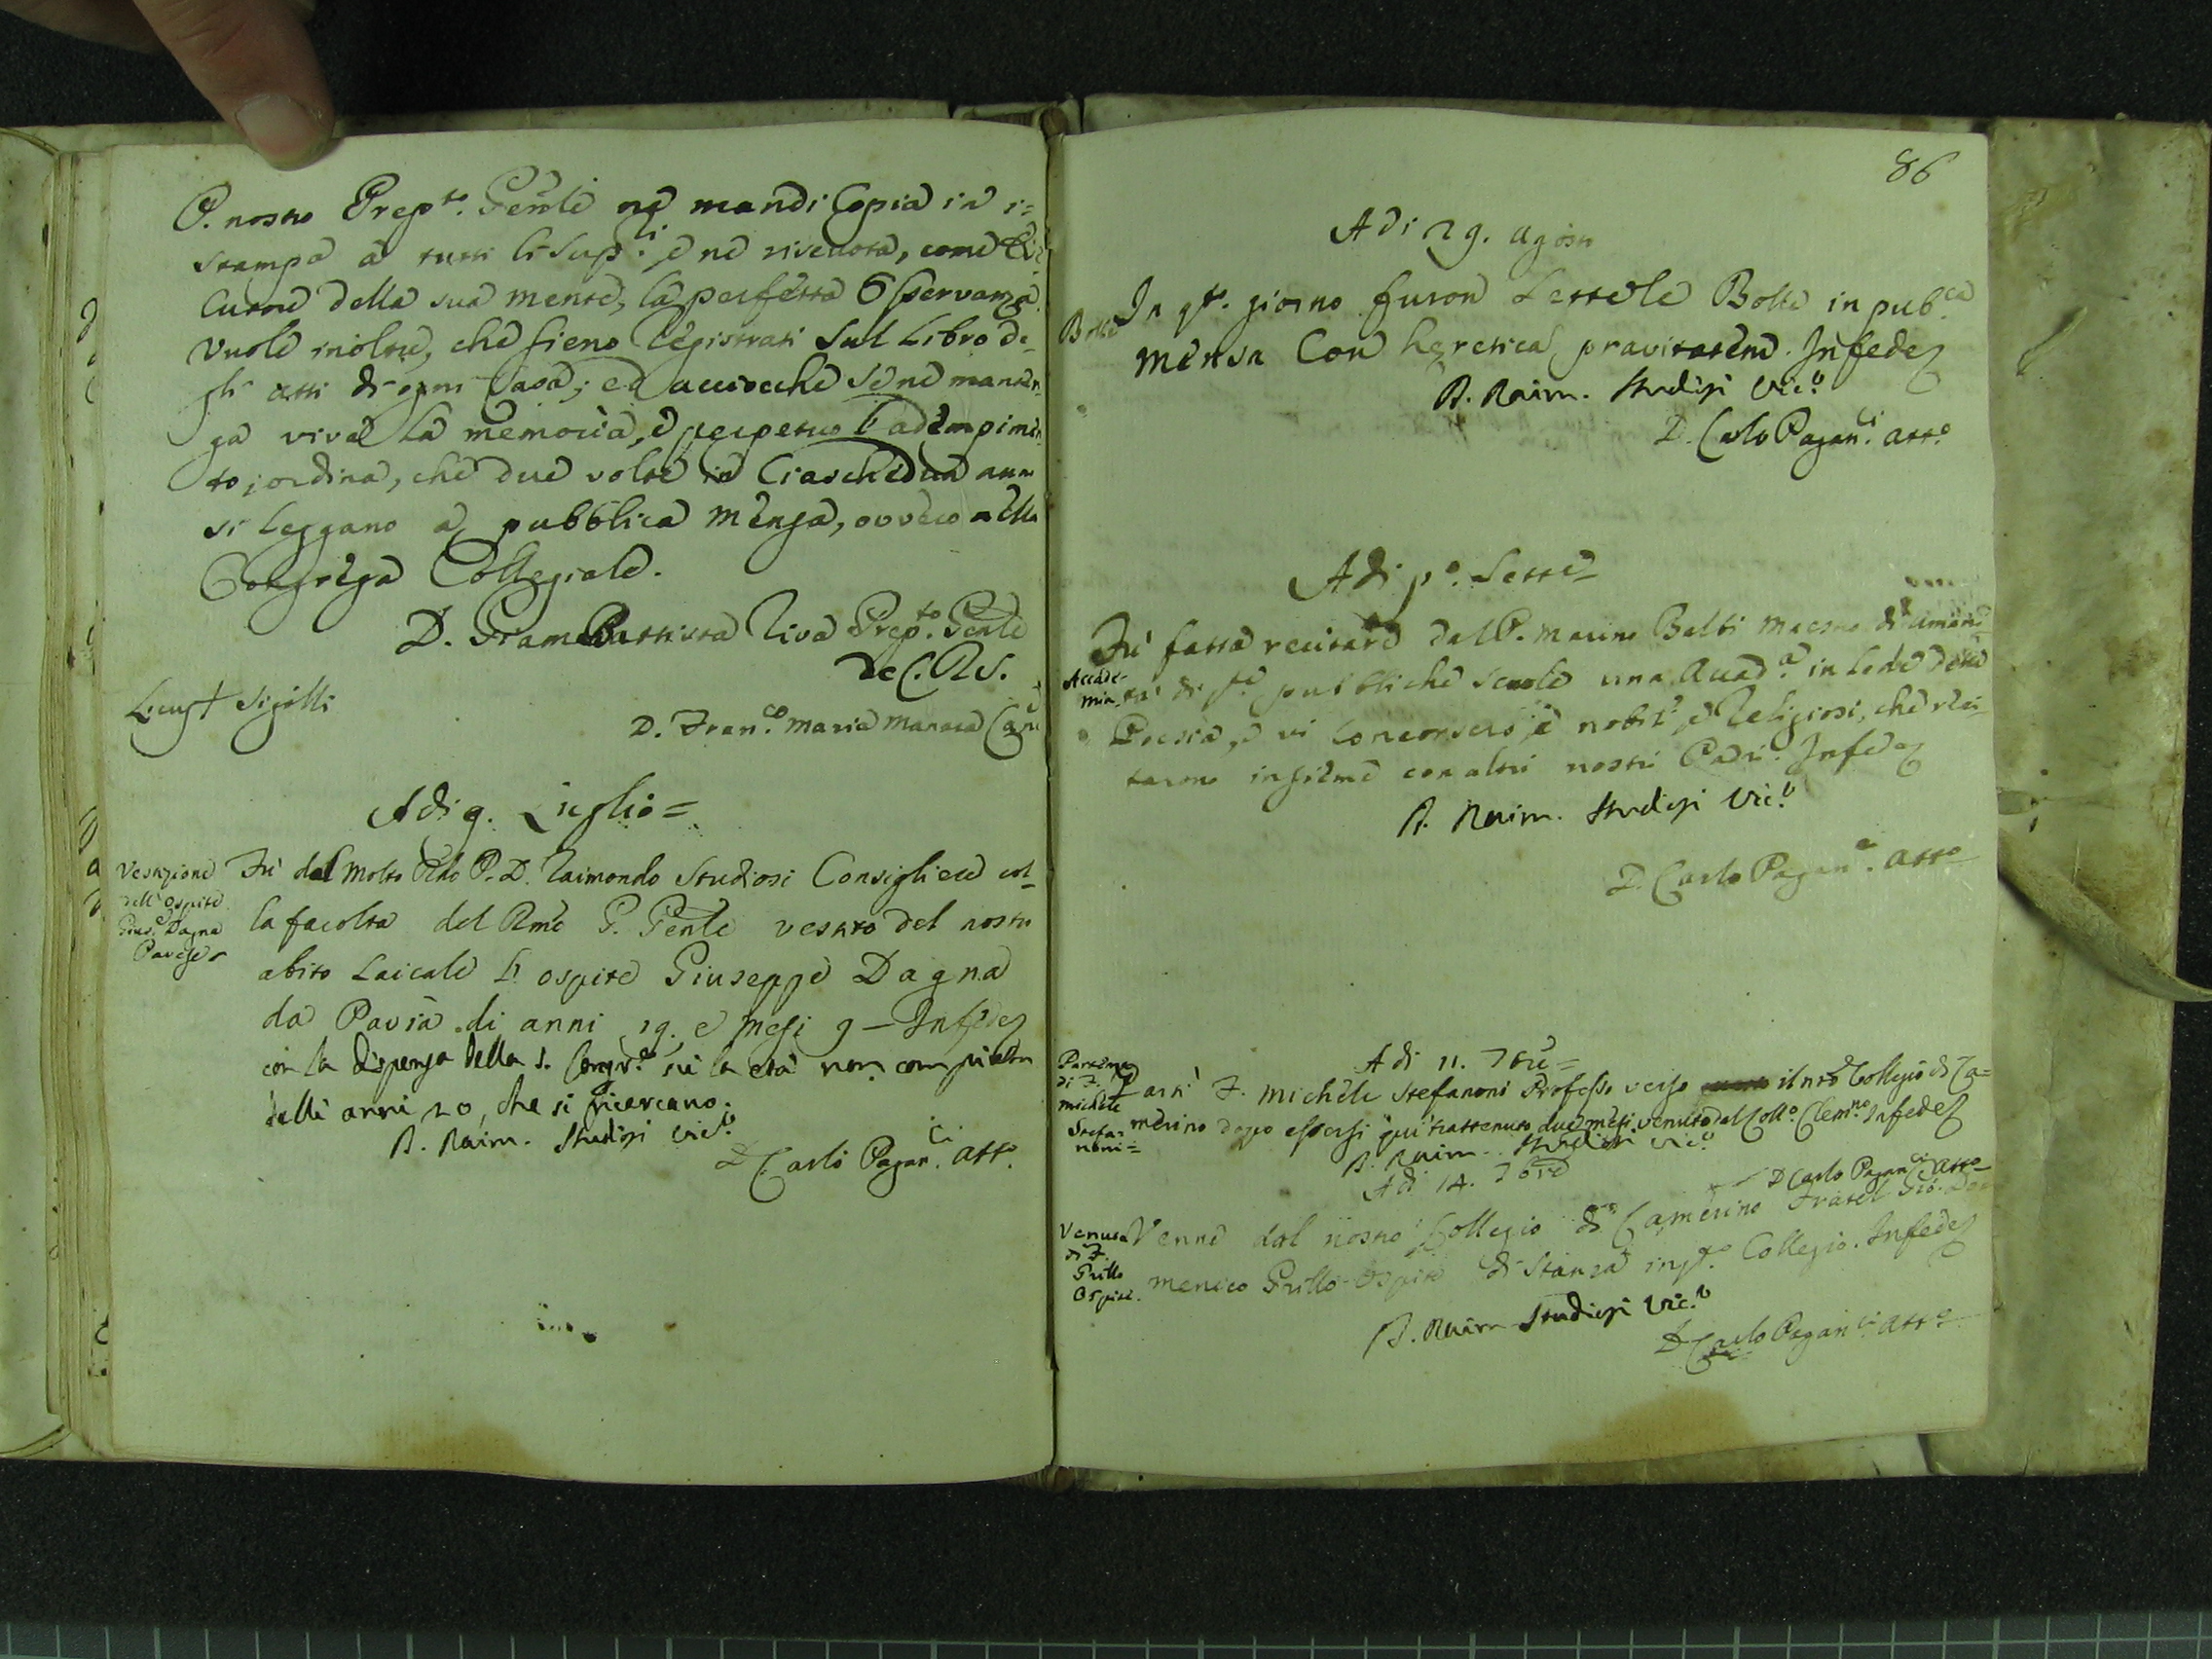 P. nostro Prep.to Gen̄le ne mandi Copia in i=
stampa a tutti li Sup.ri e ne riscuota, come
della sua mente, la perfetta Osservanza.
Vuole inoltre, che sieno registrati sul Libro de-
gli atti di ogni Casa; ed acciocche se ne manten-
ga viva la memoria, e perpetuo l'adempimen-
to, ordina, che due volte in Ciaschedun anno
si leggano a pubblica mensa, ovvero nella
Congrega Collegiale.
D. Giam Battista Riva Prep.to Gen̄le
de C. R. S.
Locus † Sigilli
D. Fran.co Maria Manara Can.
Adi 9. Luglio =
Vestizione
dell'Ospite
Gius.e Dagna
Pavese
Fù dal Molto Rdo P. D. Raimondo Studiosi Consigliere col-
la facolta del Rmo P. Gen̄le vestito del nostro
abito Laicale l'ospite Giuseppe Dagna
da Pavia di anni 19. e mesi 9 – In fede
con la dispensa della S. Congr.e su la età non compiuta
delli anni 20, che si ricercano.
D. Raim. Studiosi Vic.o
D. Carlo Pagan.ci Att.o
86
Adi 29. Agosto
Bolle
In q.to giorno furon Lette le Bolle in pub.ca
mensa Con heretica pravitatem. In fede
D. Raim. Studiosi Vic.o
D. Carlo Pagan.ci att.o
Adi p.o Sette
Accade-
mia
Fù fatta recitare dal P. Marino Balbi Maestro di umani-
tà di q.te pubbliche scuole una Accad.a in lode della
Poesia, e vi concorsero e nobil.i e Religiosi, che reci-
tarono insieme con altri nostri Padri. In fede
D. Raim. Studiosi Vic.o
D. Carlo Pagan.ci Att.o
Adi 11. 7bre =
Partenza
di F.
Michele
Stefa-
noni =
Partì F. Michele Stefanoni Professo verso il nr̄o Collegio di Ca=
merino dopo essersi quì trattenuto due mesi venuto dal Coll.o Clem.no In fede
D. Raim. Studiosi Vic.o
D. Carlo Pagan.ci Att.o
Adi 14. 7bre
Venuta
di F.
Grillo
Ospite.
Venne dal nostro Collegio di Camerino Fratel Gio: Do-
menico Grillo Ospite di stanza in q.to Collegio. In fede
D. Raim Studiosi Vic.o
D. Carlo Pagan.ci Att.o